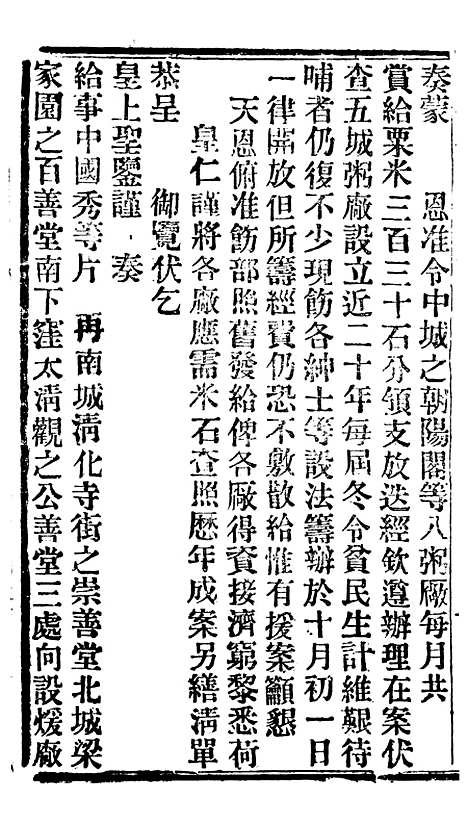 奏蒙　　恩准令中城之朝陽閣等八粥廠每月共
賞給粟米三百三十石分領支放迭經欽遵辦理在案伏
查五城粥廠設立近二十年每屆冬令貧民生計維艱待
哺者仍復不少現飭各紳士等設法籌辦於十月初一日
一律開放但所籌經費仍恐不敷散給惟有援案籲懇
天恩俯准飭部照舊發給俾各廠得資接濟窮黎悉荷
皇仁謹將各廠應需米石查照歷年成案另繕清單
恭呈　　御覽伏乞
皇上聖鑒謹　奏
給事中國秀等片　再南城清化寺街之崇善堂北城梁
家園之百善堂南下窪太清觀之公善堂三處向設煖廠